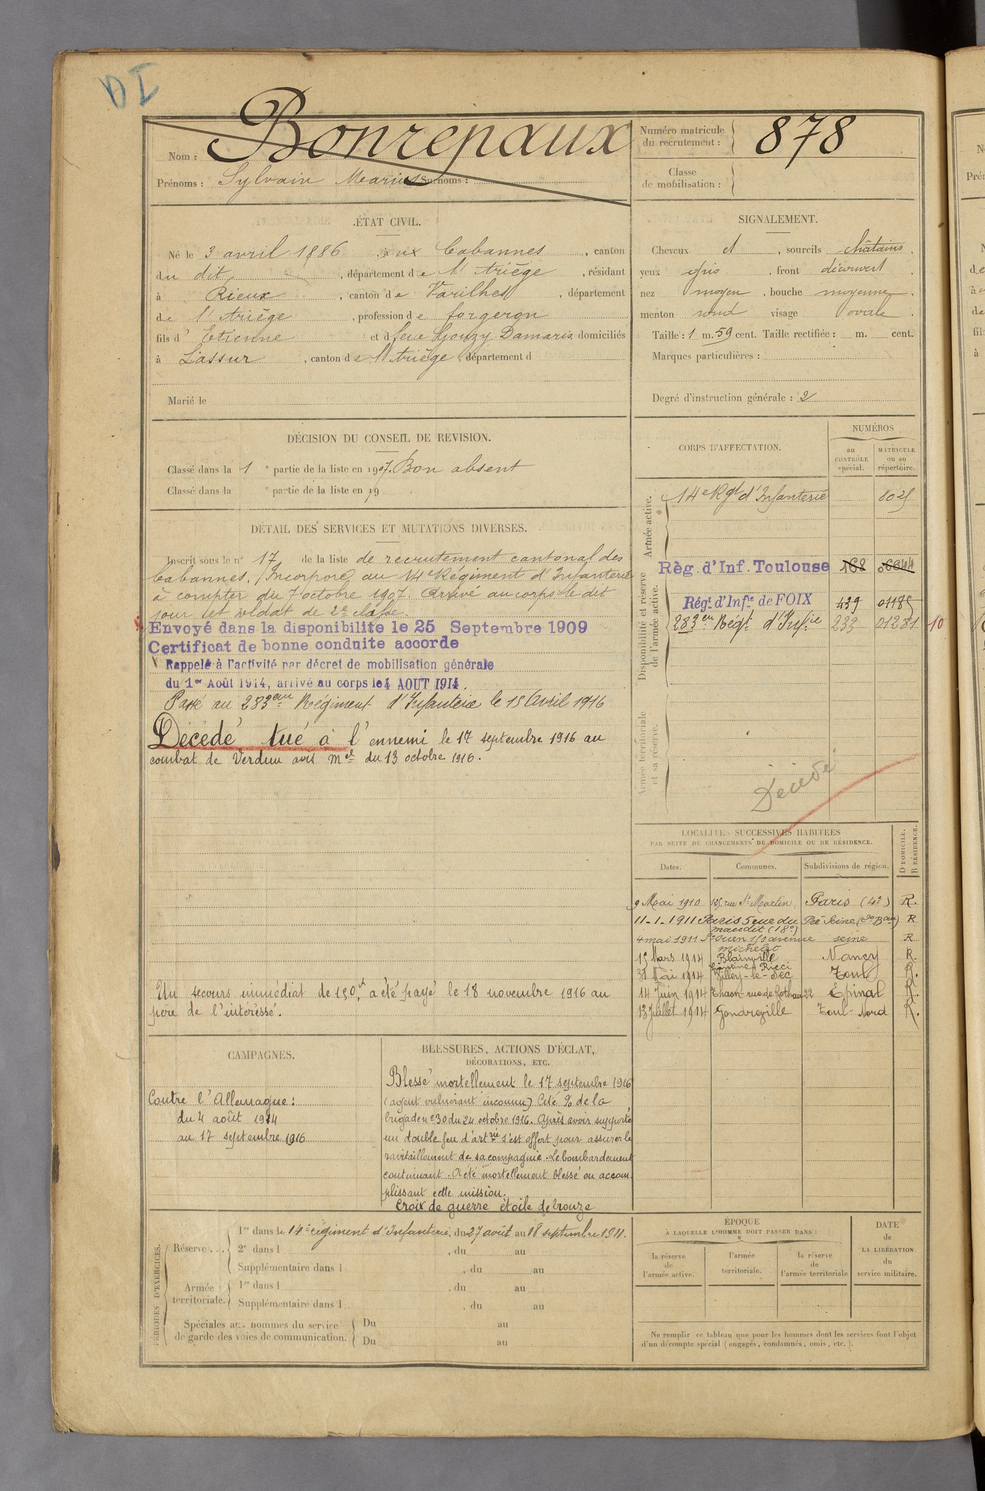 DI
Nom : Bonrepaux
Prénoms : Sylvain Marius Surnoms :
Numéro matricule du recrutement : 878
Classe de mobilisation :
ÉTAT CIVIL.
Né le 3 avril 1886, aux Cabannes, canton
du dit, département de l'Ariège, résidant
à Rieux, canton de Varilhes, département
de l'Ariège, profession de forgeron
fils d'Etienne et de feue Gouzy Damaris domiciliés
à Lassur, canton de l'Ariège département d
Marié le
SIGNALEMENT.
Cheveux et, sourcils châtains
yeux gris, front découvert
nez moyen, bouche moyenne
menton rond visage ovale
Taille : 1 m. 59 cent. Taille rectifiée : m. cent.
Marques particulières :
Degré d'instruction générale : 2
DÉCISION DU CONSEIL DE RÉVISION.
Classé dans la 1e partie de la liste en 1907. Bon absent
Classé dans la e partie de la liste en 19
DÉTAIL DES SERVICES ET MUTATIONS DIVERSES.
Inscrit sous le n° 17 de la liste de recrutement cantonal des
Cabannes. Incorporé au 14e Régiment d'Infanterie
à compter du 7 octobre 1907. Arrivé au corps le dit
jour et soldat de 2e classe.
Envoyé dans la disponibilité le 25 Septembre 1909
Certificat de bonne conduite accordé
Rappelé à l'activité par décret de mobilisation générale
du 1er Août 1914, arrivé au corps le 4 AOUT 1914.
Passé au 283eme Régiment d'Infanterie le 15 Avril 1916
Décédé tué à l'ennemi le 17 septembre 1916 au
combat de Verdun avis mel du 13 octobre 1916.
Un secours immédiat de 150f a été payé le 18 novembre 1916 au
père de l'intéressé.
CORPS D'AFFECTATION.
NUMÉROS
au CONTRÔLE spécial.
MATRICULE ou au répertoire.
Armée active.
14e Rgt d'Infanterie 8025
Disponibilité et réserve de l'armée active.
Règ. d'Inf. Toulouse 168
Régt d'Infie de FOIX 439 01185
283eme Régt d'Infie 233 01281 10
Armée territoriale et sa réserve.
Décédé
LOCALITÉS SUCCESSIVES HABITÉES
PAR SUITE DE CHANGEMENTS DE DOMICILE OU DE RÉSIDENCE.
Dates. Communes. Subdivisions de région. DOMICILE, RÉSIDENCE.
9 Mai 1910 rue St Martin Paris (4e) R.
11-1-1911 Paris 5 rue du (18e) R
4 mai 1911 St Ouen avenue michelet seine R
Mars 1914 Blainville Nancy R.
31 Mai 1914 Ricci Villey-le-Sec Toul R.
14 Juin 1914 Thaon Epinal R.
13 Juillet 1914 Gondreville Toul-Nord R.
CAMPAGNES.
Contre l'Allemagne :
du 4 août 1914
au 17 septembre 1916
BLESSURES, ACTIONS D'ÉCLAT,
DÉCORATIONS, ETC.
Blessé mortellement le 17 septembre 1916
(agent vulnérant inconnu) Cité % de la
brigade n°30 du 24 octobre 1916. Après avoir supporté
un double feu d'artrie s'est offert pour assurer le
ravitaillement de sa compagnie. Le bombardement
continuant. A été mortellement blessé en accom
plissant cette mission.
Croix de guerre étoile de bronze
PÉRIODES D'EXERCICES.
Réserve...
1re dans le 14e régiment d'Infanterie, du 27 août au 18 septembre 1911.
2e dans l , du au
Supplémentaire dans l , du au
Armée territoriale.
1re dans l , du au
Supplémentaire dans l , du au
Spéciales aux hommes du service
de garde des voies de communication.
Du au
Du au
ÉPOQUE
À LAQUELLE L'HOMME DOIT PASSER DANS :
la réserve de l'armée active.
l'armée territoriale.
la réserve de l'armée territoriale
DATE de LA LIBÉRATION du service militaire.
Ne remplir ce tableau que pour les hommes dont les services font l'objet
d'un décompte spécial (engagés, condamnés, omis, etc.).